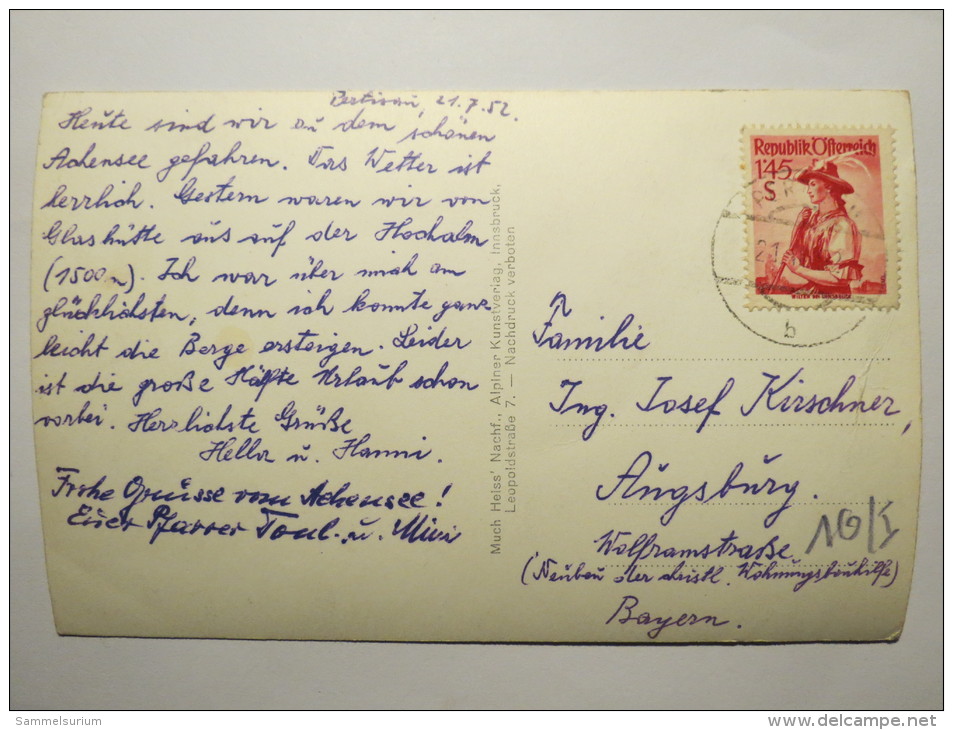 Pertisau, 21.7.52.
Heute sind wir zu dem schönen
Achensee gefahren. Das Wetter ist
herrlich. Gestern waren wir von
Glashütte aus auf der Hochalm
(1500m). Ich war über mich am
glücklichsten, denn ich konnte ganz
leicht die Berge ersteigen. Leider
ist die große Hälfte Urlaub schon
vorbei. Herrlichste Grüße
Hella u. Hanni.
Frohe Grüsse vom Achensee!
Euer Pfarrer u. Mizi
Much Heiss' Nachf., Alpiner Kunstverlag, Innsbruck,
Leopoldstraße 7. — Nachdruck verboten
Republik Österreich
1'45
S
21
b
Familie
Ing. Josef Kirschner,
Augsburg.
Wolframstraße
(Neubau der christl. Wohnungsbauhilfe)
Bayern.
10/I
Sammelsurium
www.delcampe.net